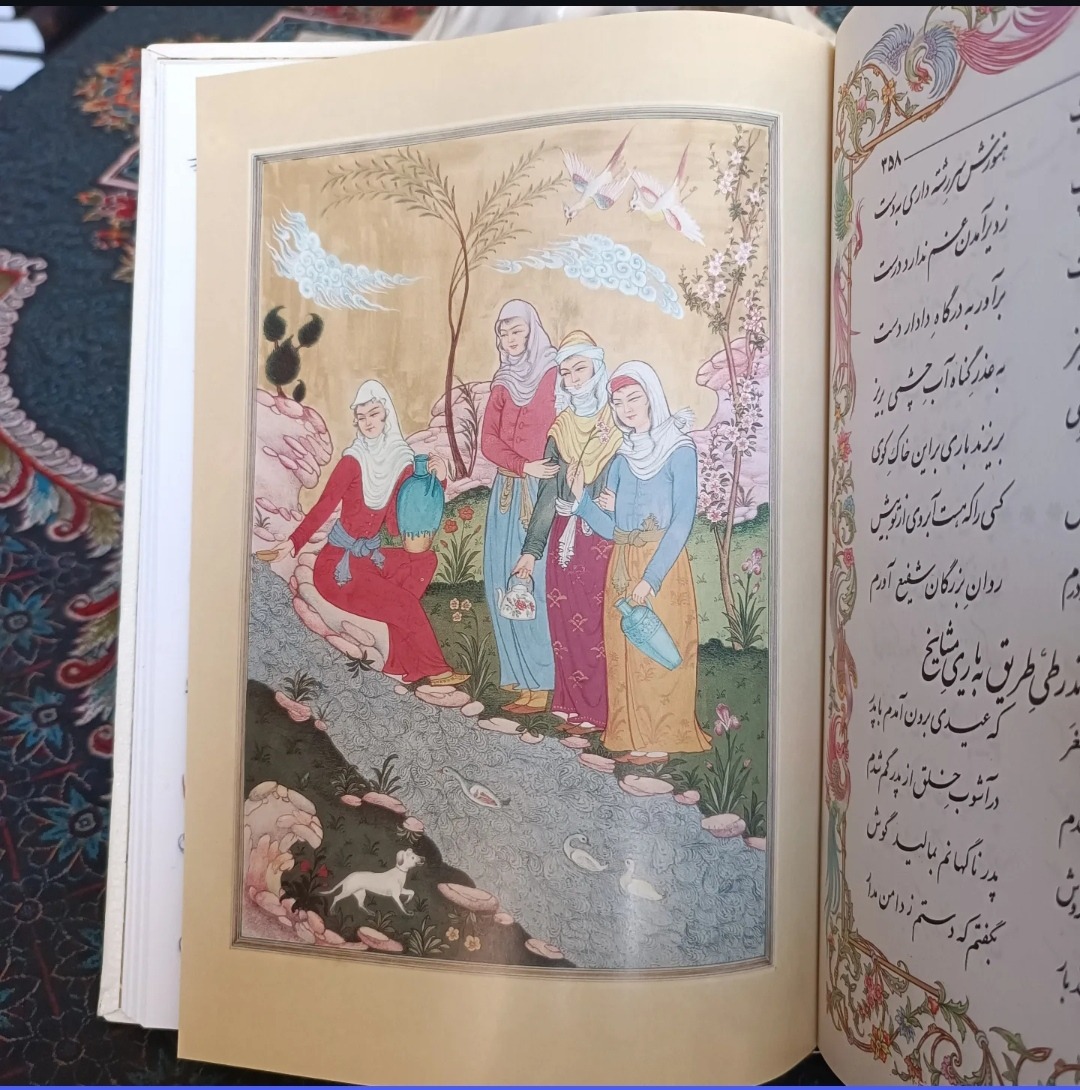 ۳۵۸
هنوزش سر رشته داری به دست
زد یرآمدن غم ندارد درست
برآور به درگاه دادار دست
به عذر گناه آب چشمی بریز
بریزند باری بر این خاک کوی
کسی را که هست آبروی از تو بیش
روان بزرگان شفیع آورم
در طی طریق به یاری مشایخ
که عیدی برون آمدم با پدر
در آشوب خلق از پدر گم شدم
پدر ناگهانم بمالید گوش
بگفتم که دستم ز دامن مدار